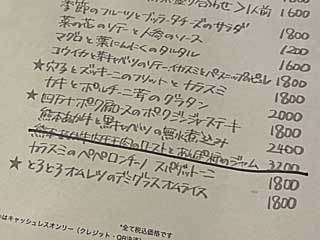 盛り合わせ 〉1人前 1600
季節のフルーツとブッラータチーズのサラダ 1800
菜の花のソテー と人参のソース 1600
マグロと葉にんにくのタルタル 1200
コウイカと芽キャベツのソテー、イカスミと 1600
★穴子とズッキーニのフリット と カラスミ 1800
カキとポルチーニ茸のグラタン 1800
★四万十ポーク肩ロースのポークジンジャーステーキ 2000
熊本あか牛と黒キャベツの無水煮込み 1800
熊本あか牛 のローストと のジャム 2400
カラスミのペペロンチーノ スパゲットーニ 3200
★とろとろオムレツのデミグラスオムライス 1800
1800
*全て税込価格です
はキャッシュレスオンリー（クレジット・QR決済